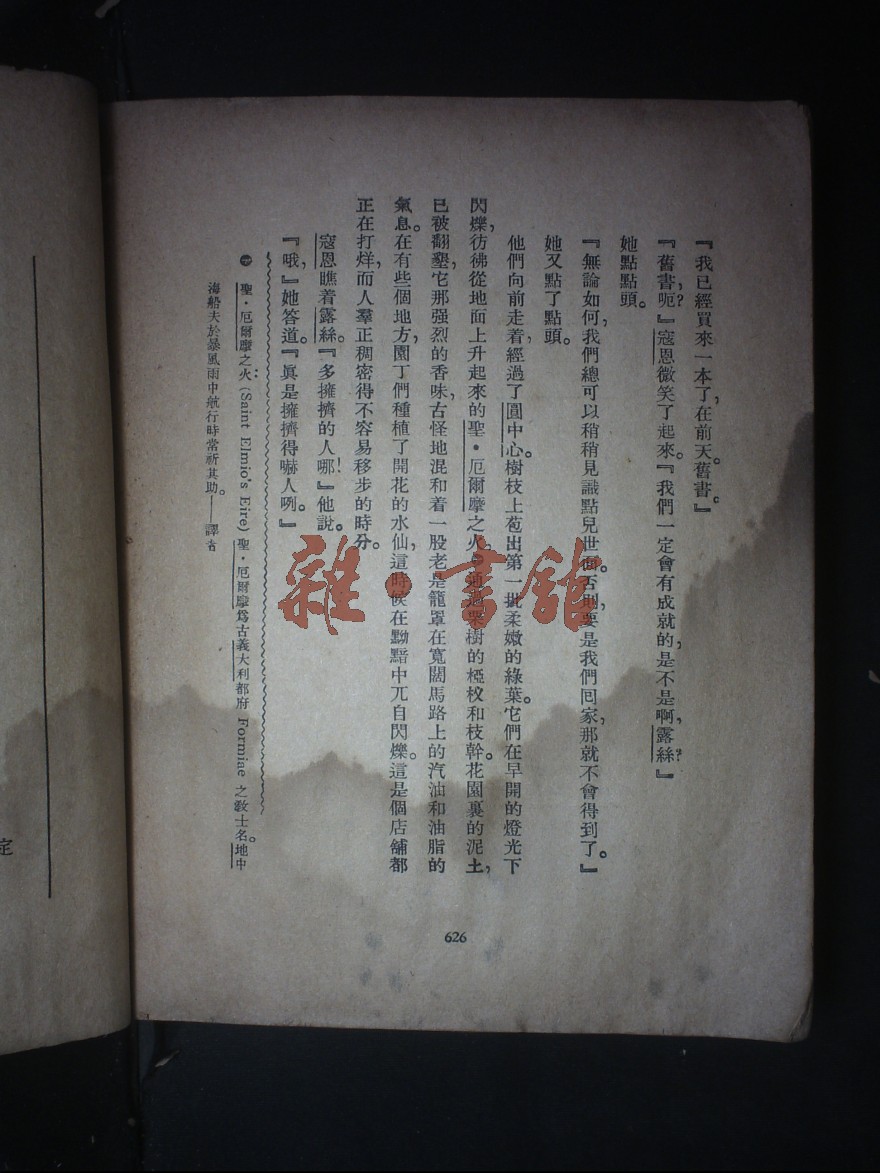 『我已經買來一本了，在前天。舊書。』
『舊書呃？』寇恩微笑了起來。『我們一定會有成就的，是不是啊，露絲？』
她點點頭。
『無論如何，我們總可以稍稍見識點兒世面。否則，要是我們回家，那就不會得到了。』
她又點了點頭。
他們向前走着，經過了圓中心。樹枝上苞出第一批柔嫩的綠葉。它們在早開的燈光下
閃爍，彷彿從地面上升起來的聖·厄爾摩之火樹的椏杈和枝幹。花園裏的泥土，
已被翻墾，它那强烈的香味，古怪地混和着一股老是籠罩在寬闊馬路上的汽油和油脂的
氣息。在有些個地方，園丁們種植了開花的水仙，這時候在黝黯中兀自閃爍。這是個店舖都
正在打烊，而人羣正稠密得不容易移步的時分。
寇恩瞧着露絲。『多擁擠的人哪！』他說。
『哦，』她答道。『眞是擁擠得嚇人咧。』
聖·厄爾摩之火：(Saint Elmio's Eire) 聖·厄爾摩爲古義大利都府 Formiae 之教士名。地中
海船夫於暴風雨中航行時常祈其助。——譯者
626
定
雜·書館